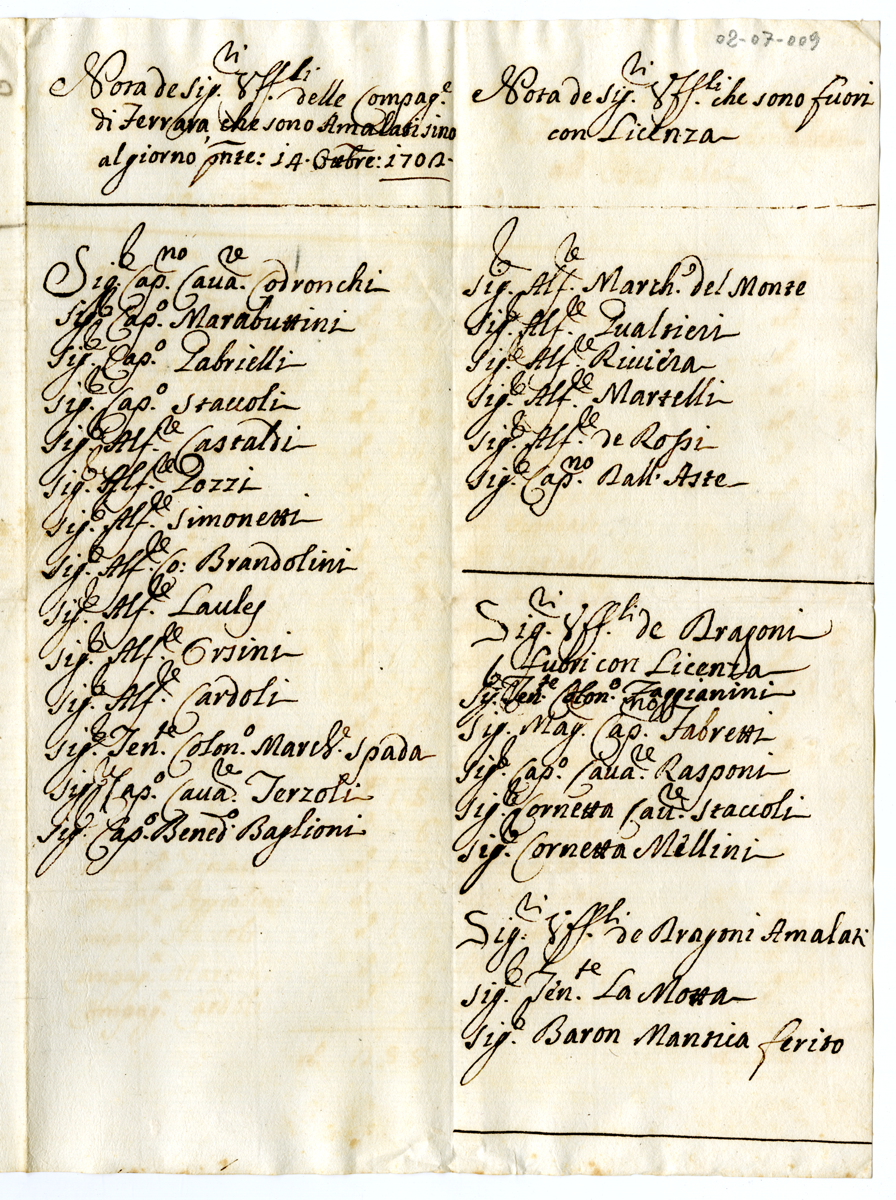 02-07-009
Nota de Sig.ri Uff.li delle Compag.e
di Ferrara, che sono Amalati sino
al giorno pnte: 14. Ottbre: 1702.
Sig.r Cap.no Cava.re Codronchi
Sig.r Cap.o Marabuttini
Sig.r Cap.o Gabrielli
Sig.r Cap.o Staccoli
Sig.r Alf.re Castaldi
Sig.r Alf.re Pozzi
Sig.r Alf.re Simonetti
Sig.r Alf.re Co: Brandolini
Sig.r Alf.re Laules
Sig.r Alf.re Orsini
Sig.r Alf.re Cardoli
Sig.r Ten.te Colon.o March.e Spada
Sig.r Cap.o Cava.re Terzoli
Sig.r Cap.o Bened.o Baglioni
Nota de Sig.ri Uff.li che sono fuori
con Licenza
Sig.r Alf.re March.e del Monte
Sig.r Alf.re Gualtieri
Sig.r Alf.re Riviera
Sig.r Alf.re Martelli
Sig.r Alf.re de Rossi
Sig.r Cap.no Ball. Aste
Sig.ri Uff.li de Dragoni
fuori con Licenza
Sig.r Ten.te Colon.o Zaggianini
Sig.r Mag. Cap.no Fabretti
Sig.r Cap.o Cava.re Rasponi
Sig.r Cornetta Cav.re Staccoli
Sig.r Cornetta Mellini
Sig.ri Uff.li de Dragoni Amalati
Sig.r Ten.te La Motta
Sig.r Baron Mantica ferito